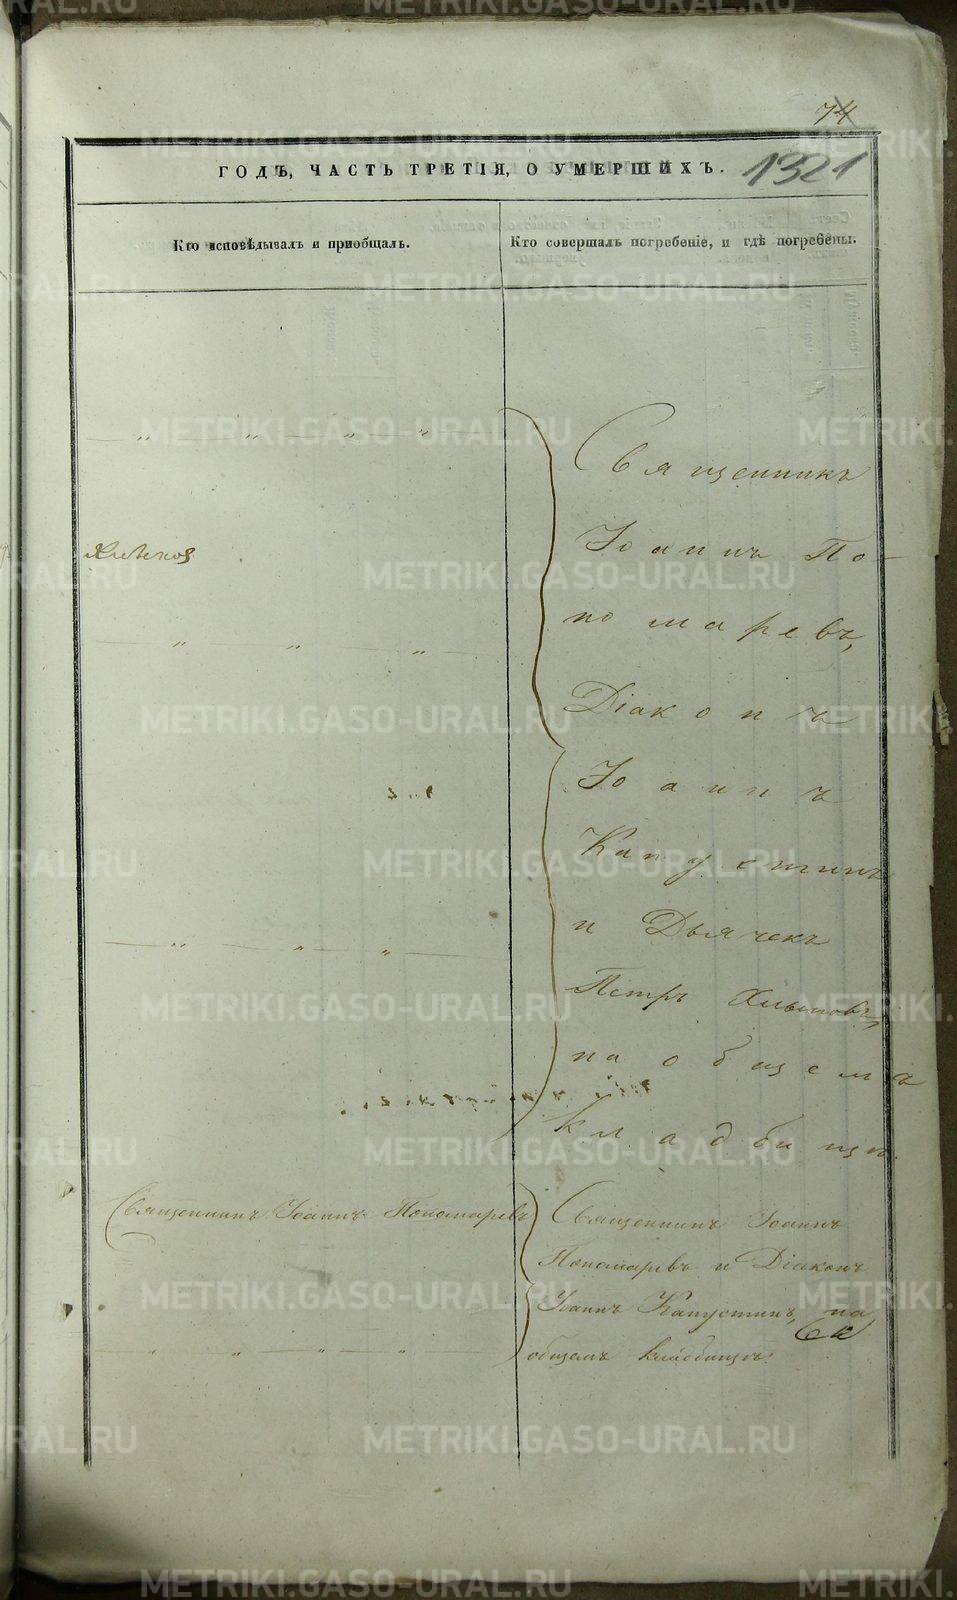 74
ГОДЪ, ЧАСТЬ ТРЕТІЯ, О УМЕРШИХЪ.
1321
Кто исповѣдывалъ и пріобщалъ.
Кто совершалъ погребеніе, и гдѣ погребены.
Священникъ
Іоаннъ По-
номаревъ,
Діаконъ
Іоаннъ
Капустинъ
и Дьячекъ
Петръ
на общемъ
кладбищѣ.
Священникъ Іоаннъ Пономаревъ
Священникъ Іоаннъ
Пономаревъ и Діаконъ
Іоаннъ Капустинъ, на
общемъ кладбищѣ.
METRIKI.GASO-URAL.RU